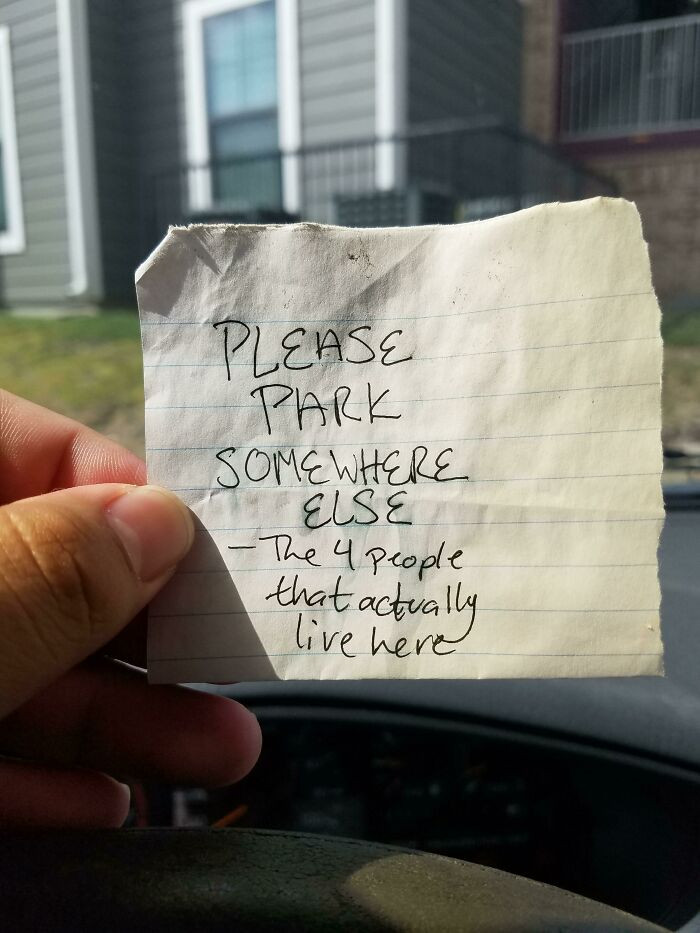 PLEASE
PARK
SOMEWHERE
ELSE
- The 4 people
that actually
live here